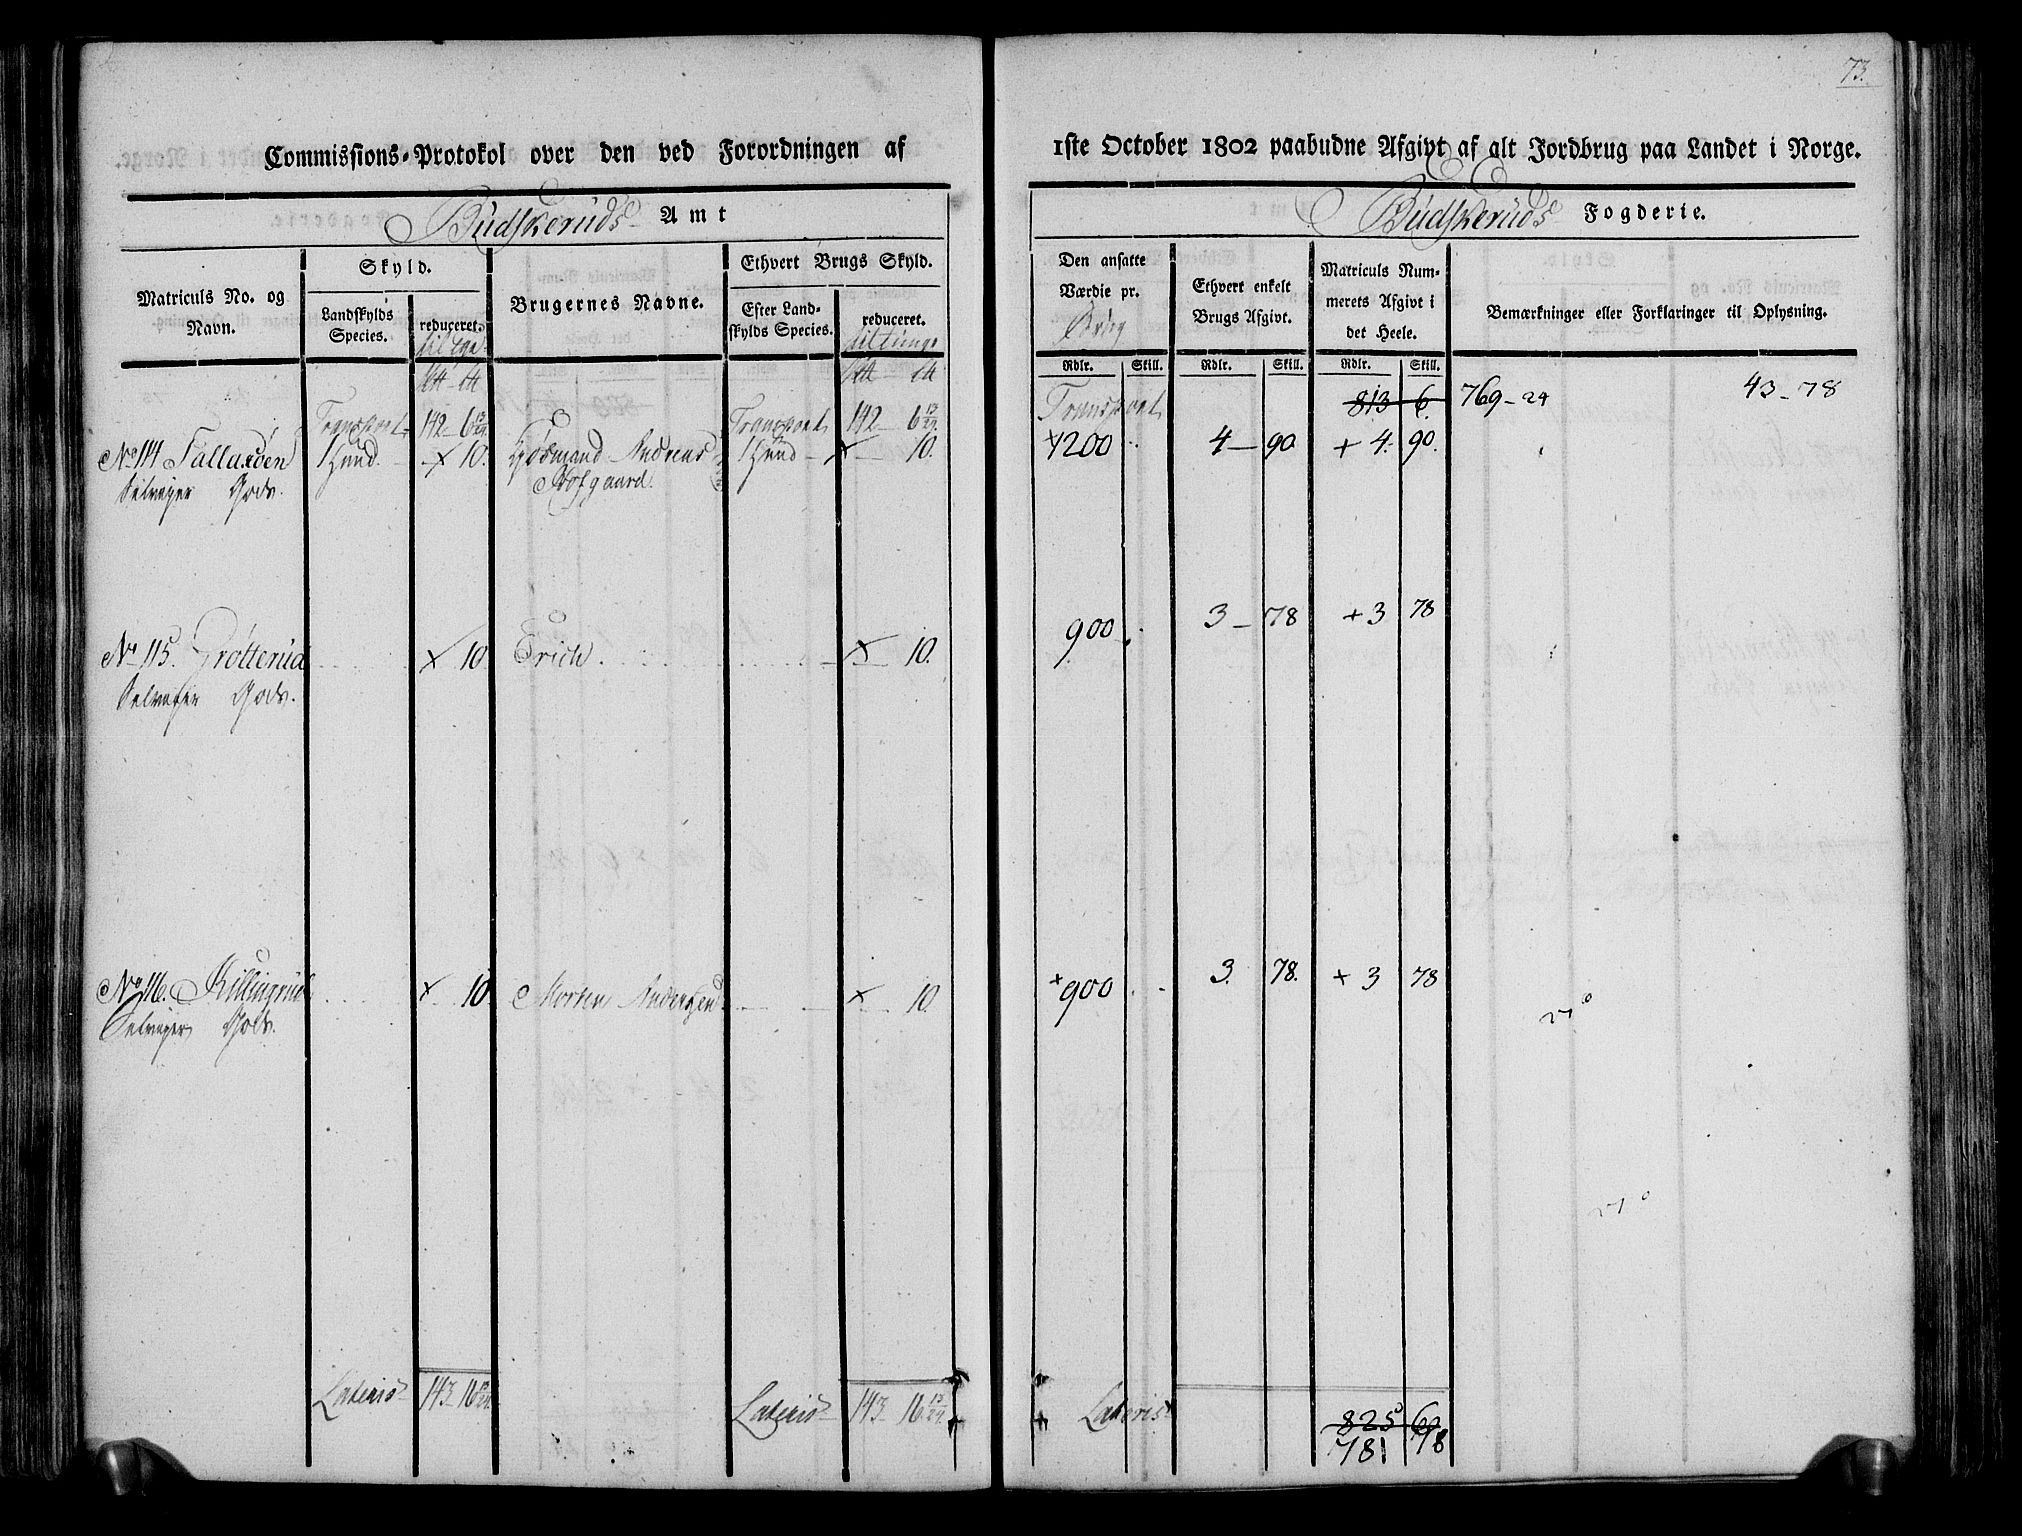 73.
Commissions-Protokol over den ved Forordningen af 1ste October 1802 paabudne Afgivt af alt Jordbrug paa Landet i Norge.
Budskeruds Amt
Budskeruds Fogderie.
Matriculs No. og Navn.
Skyld.
Landskylds Species.
reduceret.
Brugernes Navne.
Ethvert Brugs Skyld.
Efter Landskylds Species.
reduceret.
til tunge
Den ansatte Værdie pr.
Ethvert enkelt Brugs Afgivt.
Matriculs Nummerets Afgivt i det Heele.
Bemærkninger eller Forklaringer til Oplysning.
Rdlr. Skill. Rdlr. Skill. Rdlr. Skill.
Transport 142 6 13/24 Transport 142 6 13/24 Transport 813 6. 769-24 43-78
No 114 1 Hund x 10. Andreas 1 Hund x 10. 1200 4 - 90 + 4. 90.
Selveyer Gods. Hofgaard.
No 115. Trötterud x 10 Erich x 10. 900 3 - 78 + 3 78
Selveyer Gods.
No 116. Killingrud x 10 Morten Andersen x 10. +900 3. 78. + 3 78
Selveyer Gods.
Lateris 143 16 13/24 Lateris 143 16 13/24 Lateris 825 60
781 78